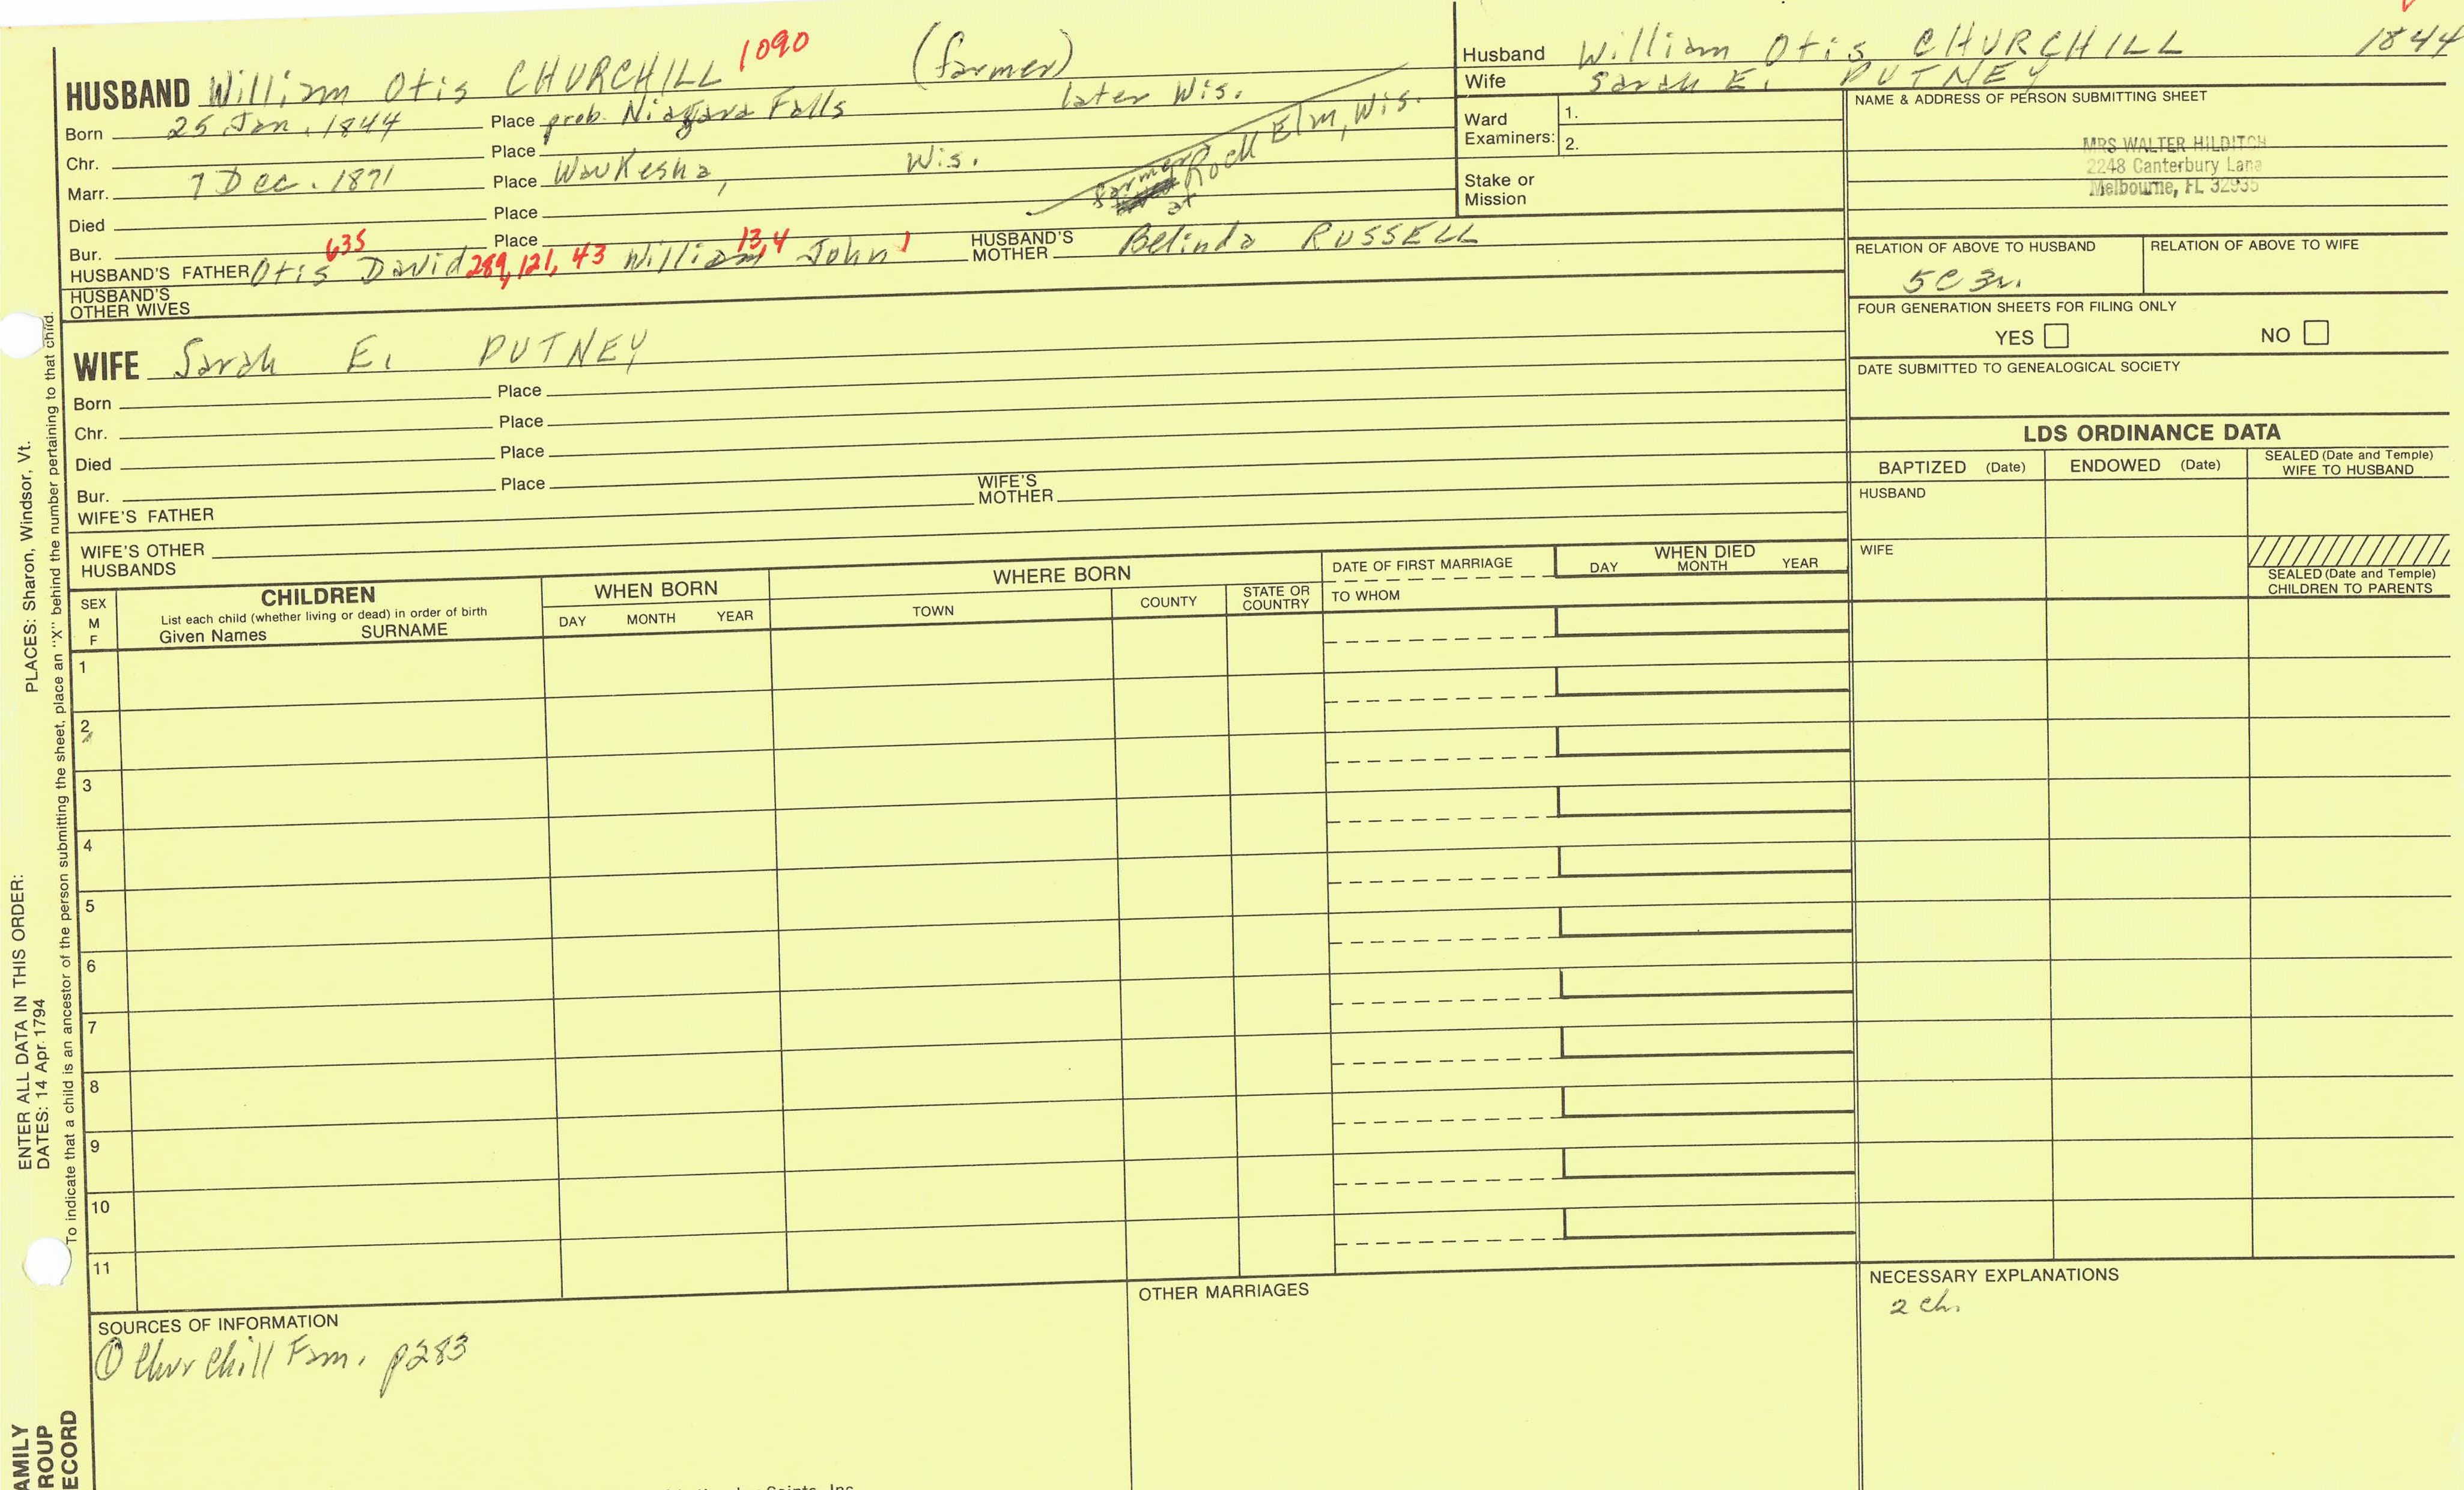 HUSBAND William Otis CHURCHILL 1090 (farmer)
Born 25 Jan. 1844 Place prob. Niagara Falls later Wis.
Chr. Place
Marr. 7 Dec. 1871 Place Waukesha, Wis.
farmer at Rock Elm, Wis.
Died Place
Bur. Place
HUSBAND'S FATHER Otis 635 David 289, 121, 43 William 13, 4 John 1 HUSBAND'S MOTHER Belinda RUSSELL
HUSBAND'S OTHER WIVES
WIFE Sarah E. PUTNEY
Born Place
Chr. Place
Died Place
Bur. Place
WIFE'S FATHER WIFE'S MOTHER
WIFE'S OTHER HUSBANDS
Husband William Otis CHURCHILL 1844
Wife Sarah E. PUTNEY
Ward Examiners: 1.
2.
Stake or Mission
NAME & ADDRESS OF PERSON SUBMITTING SHEET
MRS WALTER HILDITCH
2248 Canterbury Lane
Melbourne, FL 32935
RELATION OF ABOVE TO HUSBAND RELATION OF ABOVE TO WIFE
5C 3r.
FOUR GENERATION SHEETS FOR FILING ONLY
YES NO
DATE SUBMITTED TO GENEALOGICAL SOCIETY
LDS ORDINANCE DATA
BAPTIZED (Date) ENDOWED (Date) SEALED (Date and Temple) WIFE TO HUSBAND
HUSBAND
WIFE
SEALED (Date and Temple) CHILDREN TO PARENTS
SEX M F
CHILDREN
List each child (whether living or dead) in order of birth
Given Names SURNAME
WHEN BORN
DAY MONTH YEAR
WHERE BORN
TOWN COUNTY STATE OR COUNTRY
DATE OF FIRST MARRIAGE
TO WHOM
WHEN DIED
DAY MONTH YEAR
1
2
3
4
5
6
7
8
9
10
11
SOURCES OF INFORMATION
① Churchill Fam. p283
OTHER MARRIAGES
NECESSARY EXPLANATIONS
2 ch.
ENTER ALL DATA IN THIS ORDER:
DATES: 14 Apr. 1794 PLACES: Sharon, Windsor, Vt.
To indicate that a child is an ancestor of the person submitting the sheet, place an "X" behind the number pertaining to that child.
AMILY
ROUP
ECORD
Saints, Inc.